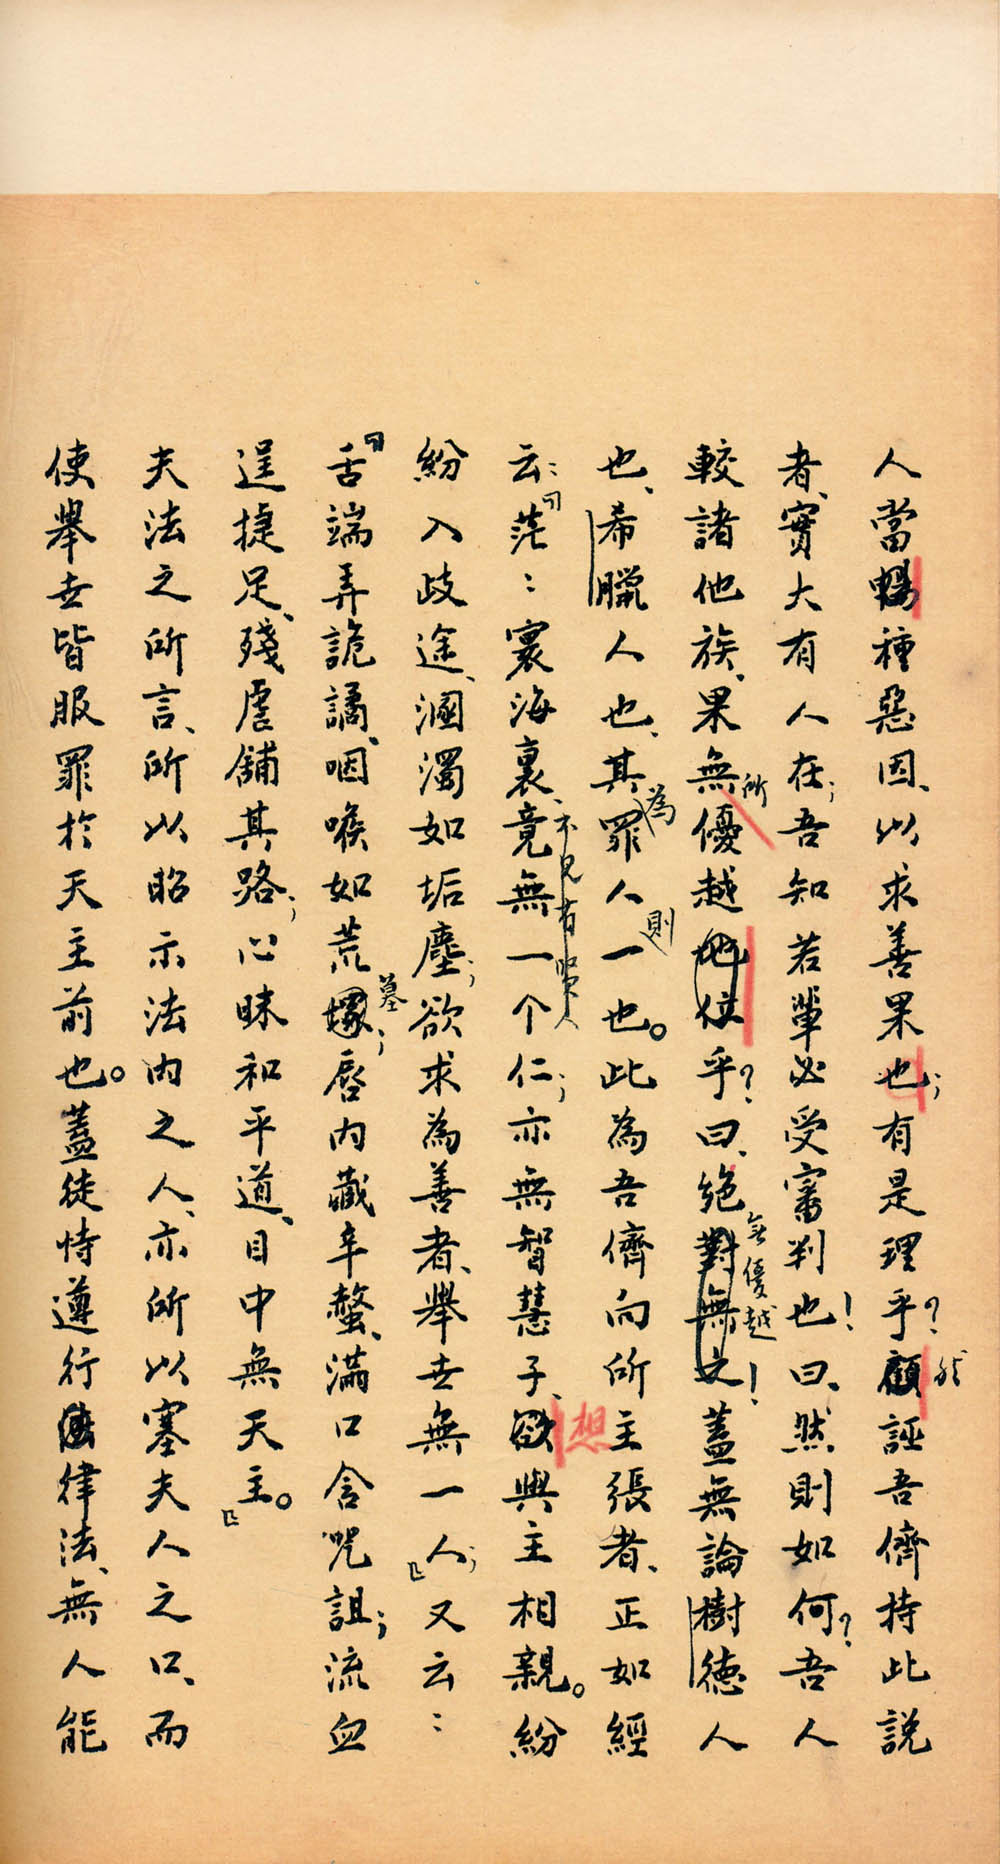 人當暢種惡因、以求善果也；有是理乎？顧然誣吾儕持此說
者、實大有人在；吾知若輩必受審判也！曰、然則如何？吾人
較諸他族、果無所優越地位乎？曰、絕對無之無優越！蓋無論樹德人
也、希臘人也、其為罪人則一也。此為吾儕向所主張者、正如經
云：「茫茫寰海裏、竟無一个仁；不見有賢人亦無智慧子、欲想與主相親。紛
紛入歧途、溷濁如垢塵；欲求為善者、舉世無一人；」又云：
「舌端弄詭譎、咽喉如荒塚墓；唇內藏辛螫、滿口含咒詛；流血
逞捷足、殘虐鋪其路；心昧和平道、目中無天主。」
夫法之所言、所以昭示法內之人、亦所以塞夫人之口、而
使舉世皆服罪於天主前也。蓋徒恃遵行律法、無人能